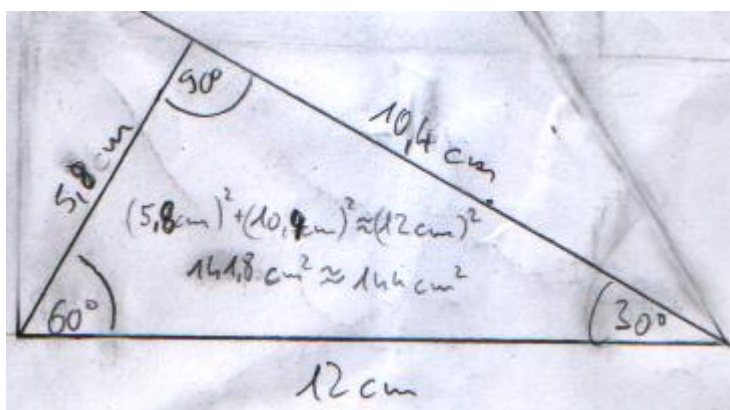 90°
10,4 cm
5,8 cm
(5,8cm)²+(10,4cm)²≈(12cm)²
141,8 cm² ≈ 144 cm²
60°
30°
12 cm